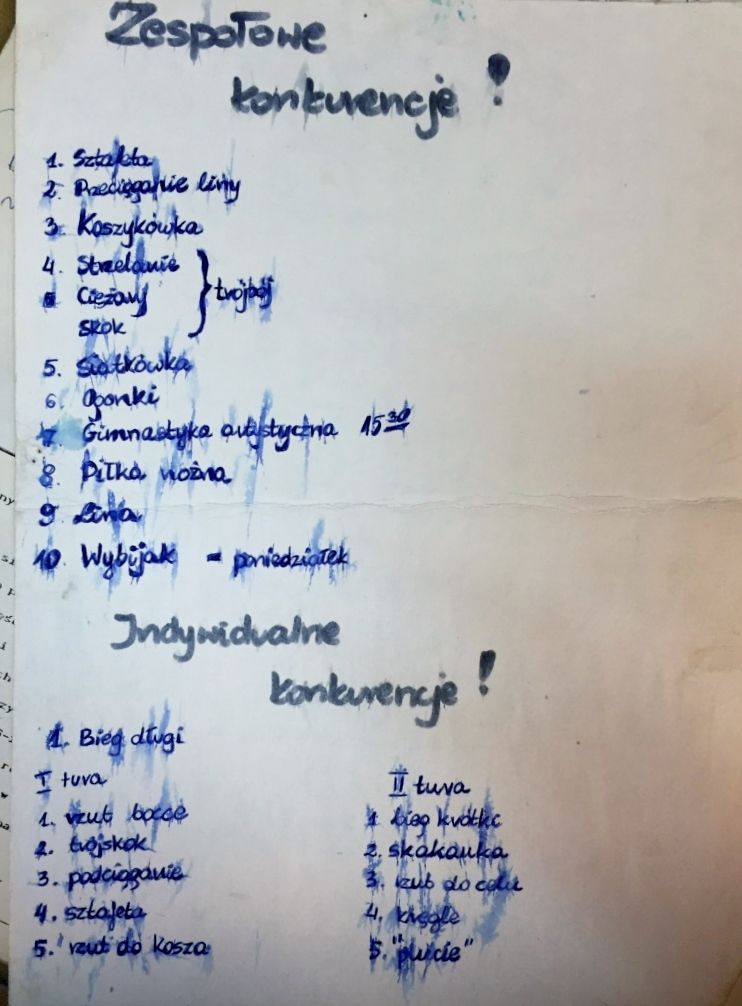 Zespołowe
konkurencje!
1. Sztafeta
2. Przeciąganie liny
3. Koszykówka
4. Strzelanie
Ciężary } trójbój
skok
5. Siatkówka
6. Ogonki
7 Gimnastyka artystyczna 15 30
8. Piłka nożna
9 Lina
10. Wybijak = poniedziałek
Indywidualne
konkurencje!
1. Bieg długi
I tura
1. rzut bocce
2. trójskok
3. podciąganie
4. sztafeta
5. rzut do kosza
II tura
1 bieg krótki
2. skakanka
3. rzut do celu
4. kręgle
5. "plucie"